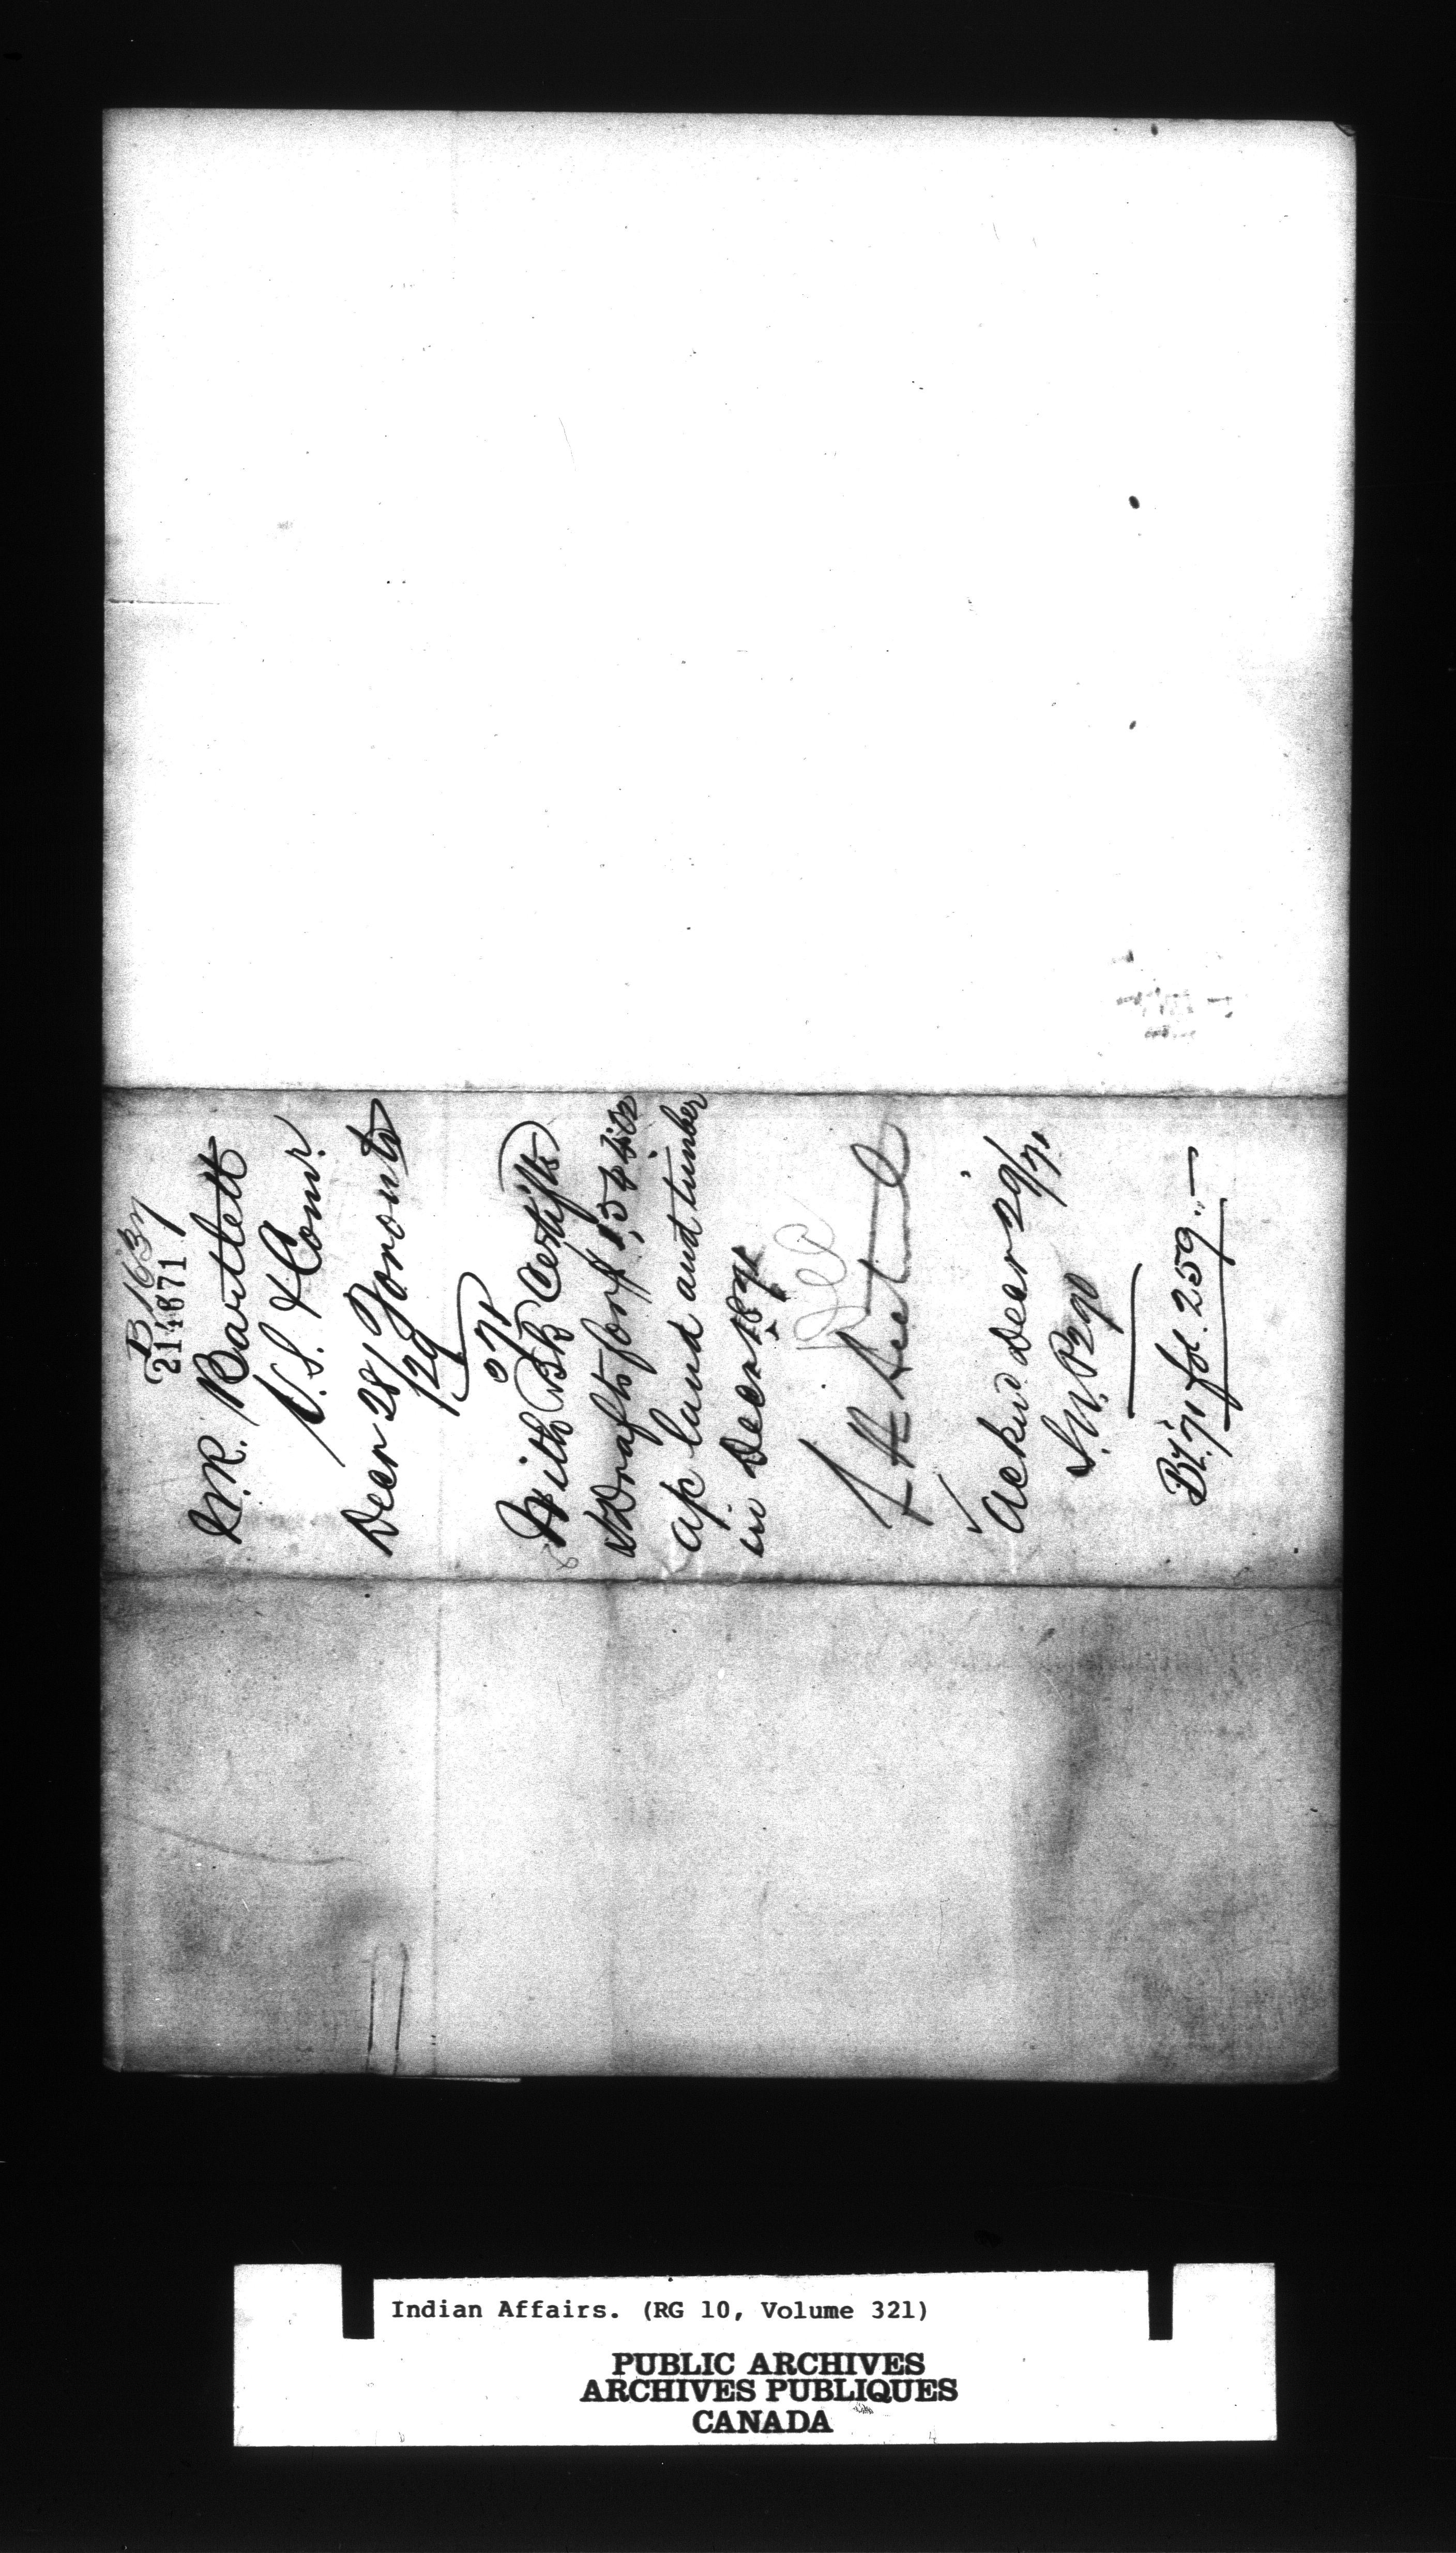 B 1637
214871
W.R. Bartlett
V.S. & Comr.
Decr 28/ Toronto
/29
071
With Bk Certifts
& Drafts for $
a/c land and timber
in Decr 1871
Ackd. Decr 29/71
S.N. P290
Bk '71 fol. 259
Indian Affairs. (RG 10, Volume 321)
PUBLIC ARCHIVES
ARCHIVES PUBLIQUES
CANADA